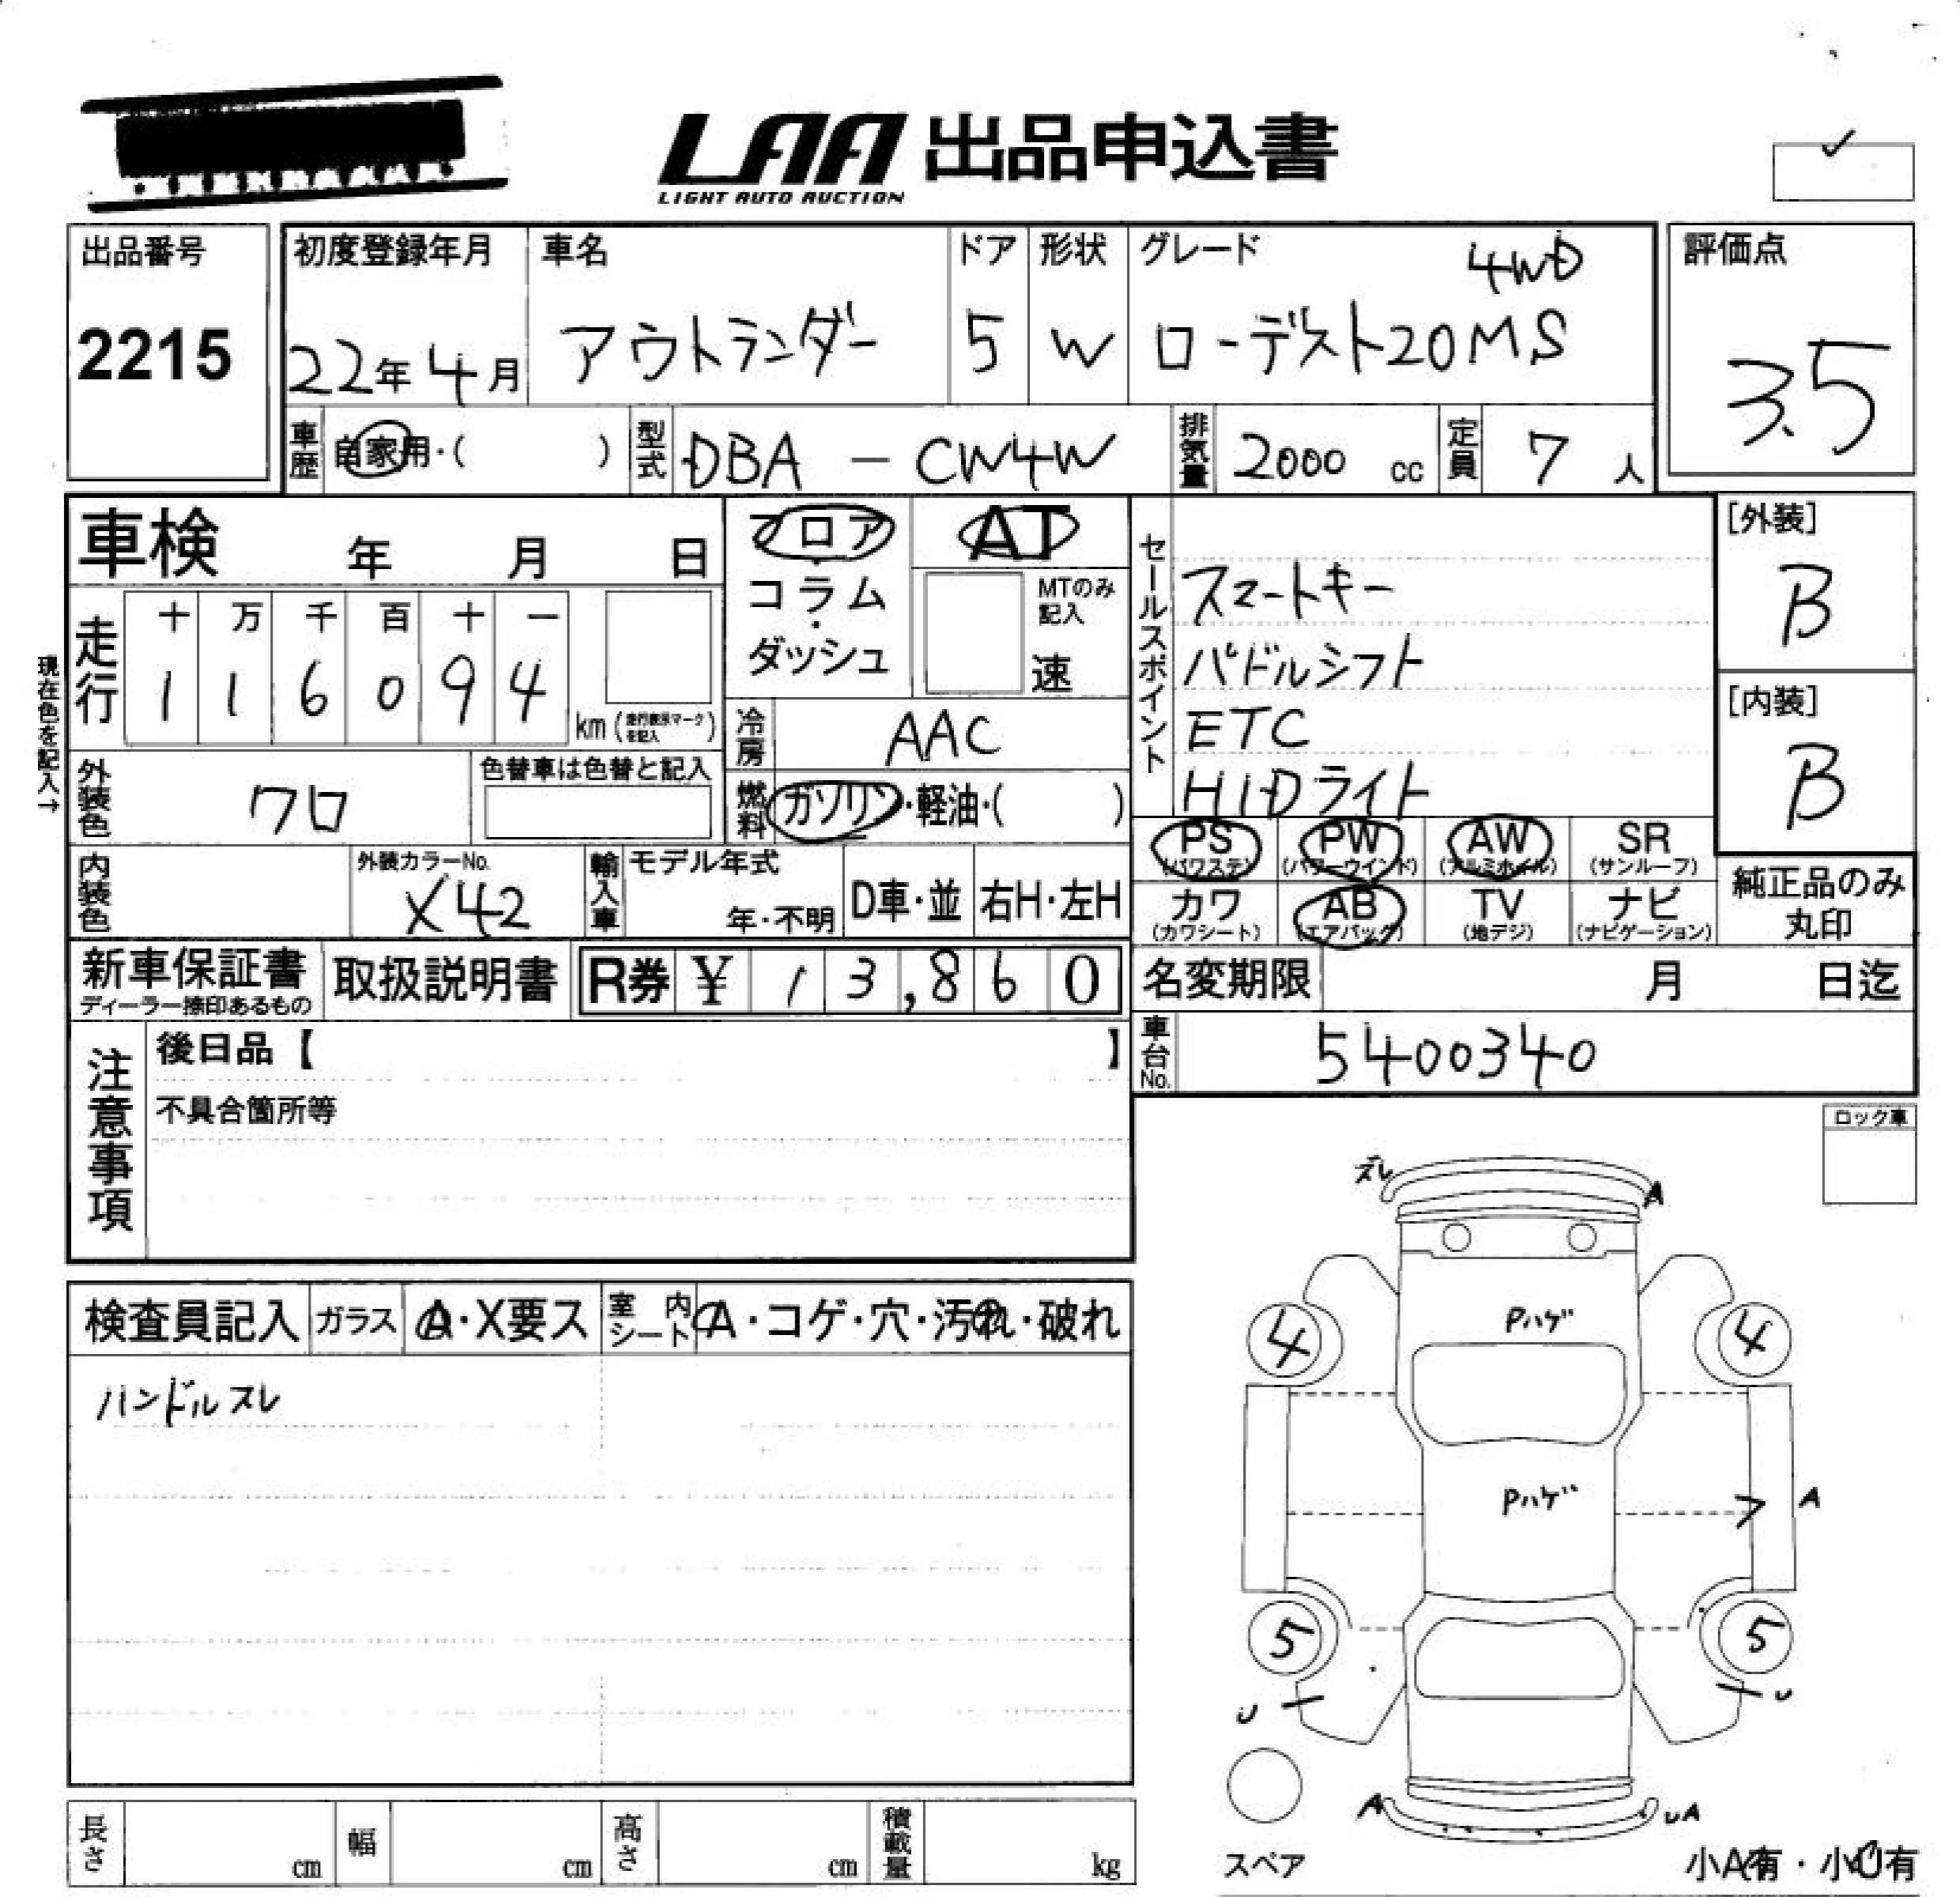 LAA 出品申込書
LIGHT AUTO AUCTION
出品番号
2215
初度登録年月
22年4月
車名
アウトランダー
ドア
5
形状
W
グレード
4WD
ローデスト20MS
評価点
3.5
車歴
自家用・( )
型式
DBA - CW4W
排気量
2000 cc
定員
7 人
車検 年 月 日
フロア
・
コラム
・
ダッシュ
AT
MTのみ
記入
速
セールスポイント
スマートキー
パドルシフト
ETC
HIDライト
[外装]
B
[内装]
B
現在色を記入→
走行
十 万 千 百 十 一
1 1 6 0 9 4
km (走行表示マークを記入)
冷房
AAC
外装色
クロ
色替車は色替と記入
燃料
ガソリン・軽油・( )
PS
(パワステ)
PW
(パワーウインド)
AW
(アルミホイル)
SR
(サンルーフ)
カワ
(カワシート)
AB
(エアバッグ)
TV
(地デジ)
ナビ
(ナビゲーション)
純正品のみ
丸印
内装色
外装カラーNo.
X42
輸入車
モデル年式
年・不明
D車・並
右H・左H
新車保証書
ディーラー捺印あるもの
取扱説明書
R券 ¥ 13,860
名変期限 月 日迄
車台No.
5400340
注意事項
後日品【 】
不具合箇所等
ロック車
検査員記入
ガラス
A・X要ス
室内
シート
A・コゲ・穴・汚れ・破れ
ハンドルスレ
ズレ
A
Pハゲ
4
4
Pハゲ
A
5
5
U
U
A
UA
スペア
小A有・小U有
長さ
cm
幅
cm
高さ
cm
積載量
kg